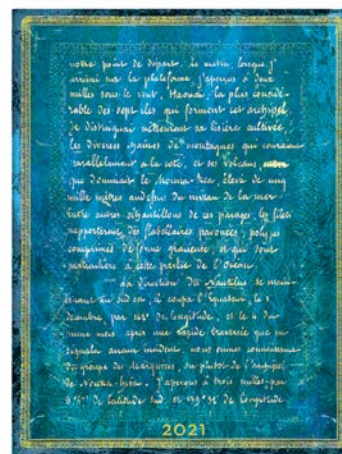 notre point de départ. Le matin, lorsque j'
arrivai sur la plateforme, j'aperçus à deux
milles sous le vent, Haouaï, la plus considé-
rable des sept îles qui forment cet archipel.
Je distinguai nettement sa lisière cultivée,
les diverses chaînes de montagnes qui courent
parallèlement à la côte, et ses volcans
que dominait le Mouna-Rea, élevé de cinq
mille mètres au dessus du niveau de la mer
Entre autres échantillons de ces parages, les filets
rapportèrent des flabellaires pavonées, polypes
comprimés de forme gracieuse, et qui sont
particuliers à cette partie de l'Océan.
La direction du Nautilus se main-
tenant au sud est, il coupa l'Équateur, le 1
décembre par 142° de longitude, et le 4 du
même mois après une rapide traversée que ne
signala aucun incident, nous eûmes connaissance
du groupe des Marquises, ou plutôt de l'archipel
de Nouka-hiva. J'aperçus à trois milles par
8°57' de latitude sud et 139°32' de longitude
2021